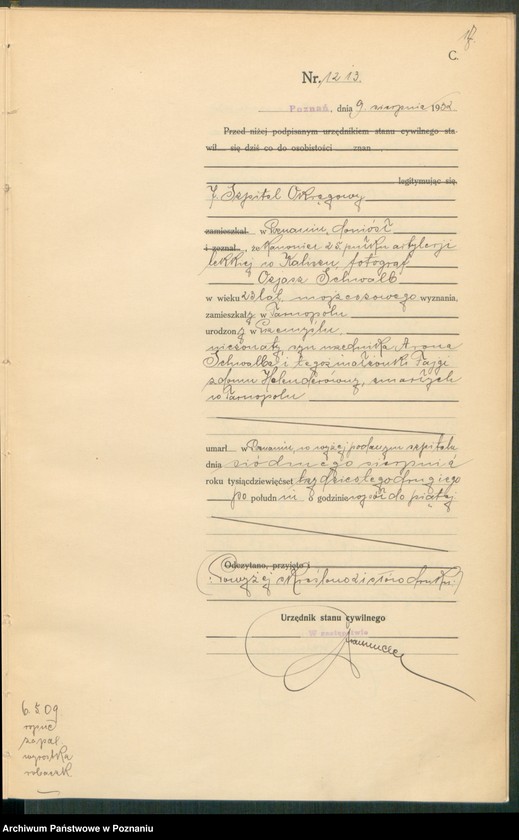 C.
Nr. 1213.
Poznań, dnia 9 sierpnia 1932
Przed niżej podpisanym urzędnikiem stanu cywilnego sta
wił się dziś co do osobistości znan
legitymując się
7. Szpital Okręgowy
zamieszkał w Poznaniu, doniósł
i zeznał, że kanonier 25 pułku artylerji
lekkiej w Kaliszu fotograf
Ozjasz Schwalb
w wieku 22 lat, mojżeszowego wyznania,
zamieszkały w Tarnopolu
urodzony w Przemyślu
nieżonaty, syn urzędnika Arona
Schwalba i tegoż małżonki Fajgi
z domu Helenderównej, zmarłych
w Tarnopolu
umarł w Poznaniu, w wyżej podanym szpitalu
dnia siódmego sierpnia
roku tysiącdziewięćset trzydziestego drugiego
po południu o godzinie wpół do piątej
Odczytano, przyjęto i
Powyżej skreślono słowo druku.
Urzędnik stanu cywilnego
W zastępstwie
6.509
ropne
zapal.
wyrostka
robaczk
Archiwum Państwowe w Poznaniu